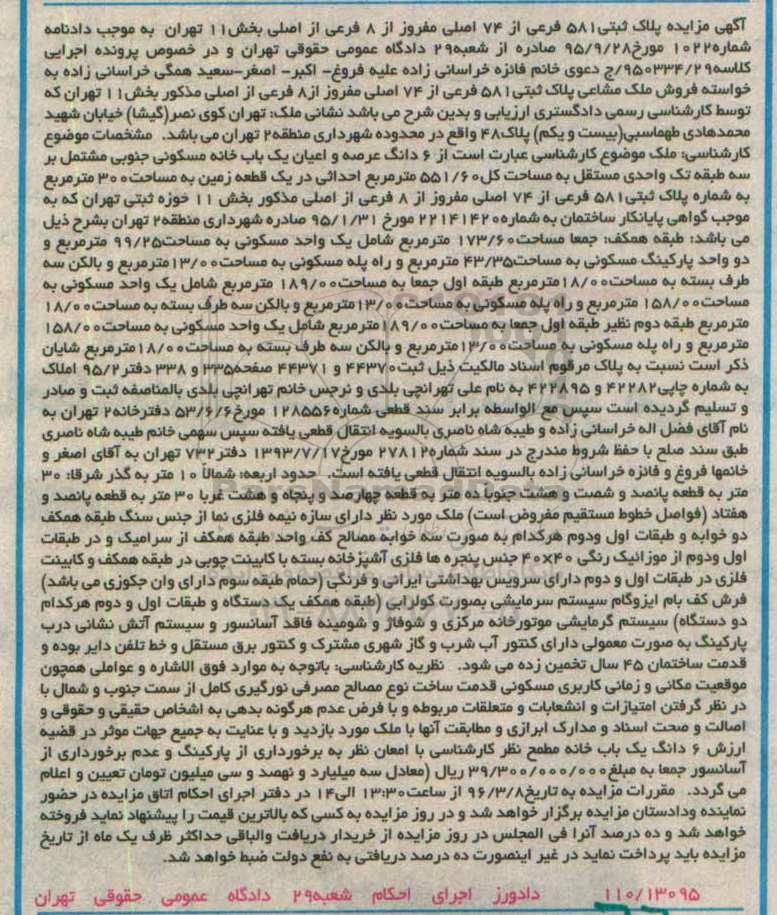 آگهی مزایده پلاک ثبتی۵۸۱ فرعی از ۷۴ اصلی مفروز از ۸ فرعی از اصلی بخش۱۱ تهران به موجب دادنامه
شماره۱۰۲۲ مورخ۹۵/۹/۲۸ صادره از شعبه۲۹ دادگاه عمومی حقوقی تهران و در خصوص پرونده اجرایی
کلاسه۹۵۰۳۳۴/۲۹/ج دعوی خانم فائزه خراسانی زاده علیه فروغ- اکبر- اصغر-سعید همگی خراسانی زاده به
خواسته فروش ملک مشاعی پلاک ثبتی۵۸۱ فرعی از ۷۴ اصلی مفروز از۸ فرعی از اصلی مذکور بخش۱۱ تهران که
توسط کارشناسی رسمی دادگستری ارزیابی و بدین شرح می باشد نشانی ملک: تهران کوی نصر(گیشا) خیابان شهید
محمدهادی طهماسبی(بیست و یکم) پلاک۴۸ واقع در محدوده شهرداری منطقه۲ تهران می باشد. مشخصات موضوع
کارشناسی: ملک موضوع کارشناسی عبارت است از ۶ دانگ عرصه و اعیان یک باب خانه مسکونی جنوبی مشتمل بر
سه طبقه تک واحدی مستقل به مساحت کل۵۵۱/۶۰ مترمربع احداثی در یک قطعه زمین به مساحت۳۰۰ مترمربع
به شماره پلاک ثبتی۵۸۱ فرعی از ۷۴ اصلی مفروز از ۸ فرعی از اصلی مذکور بخش ۱۱ حوزه ثبتی تهران که به
موجب گواهی پایانکار ساختمان به شماره۲۲۱۴۱۴۲۰ مورخ ۹۵/۱/۳۱ صادره شهرداری منطقه۲ تهران بشرح ذیل
می باشد: طبقه همکف: جمعا مساحت۱۷۳/۶۰ مترمربع شامل یک واحد مسکونی به مساحت۹۹/۲۵ مترمربع و
دو واحد پارکینگ مسکونی به مساحت۴۳/۳۵ مترمربع و راه پله مسکونی به مساحت۱۳/۰۰مترمربع و بالکن سه
طرف بسته به مساحت۱۸/۰۰مترمربع طبقه اول جمعا به مساحت۱۸۹/۰۰ مترمربع شامل یک واحد مسکونی به
مساحت۱۵۸/۰۰ مترمربع و راه پله مسکونی به مساحت۱۳/۰۰مترمربع و بالکن سه طرف بسته به مساحت۱۸/۰۰
مترمربع طبقه دوم نظیر طبقه اول جمعا به مساحت۱۸۹/۰۰مترمربع شامل یک واحد مسکونی به مساحت۱۵۸/۰۰
مترمربع و راه پله مسکونی به مساحت۱۳/۰۰مترمربع و بالکن سه طرف بسته به مساحت۱۸/۰۰مترمربع شایان
ذکر است نسبت به پلاک مرقوم اسناد مالکیت ذیل ثبت۴۴۳۷۰ و ۴۴۳۷۱ صفحه۳۳۵ و ۳۳۸ دفتر۹۵/۲ املاک
به شماره چاپی۴۲۲۸۲ و ۴۲۲۸۹۵ به نام علی تهرانچی بلدی و نرجس خانم تهرانچی بلدی بالمناصفه ثبت و صادر
و تسلیم گردیده است سپس مع الواسطه برابر سند قطعی شماره۱۲۸۵۵۶ مورخ۵۳/۶/۶ دفترخانه۲ تهران به
نام آقای فضل اله خراسانی زاده و طیبه شاه ناصری بالسویه انتقال قطعی یافته سپس سهمی خانم طیبه شاه ناصری
طبق سند صلح با حفظ شروط مندرج در سند شماره۲۷۸۱۲ مورخ۱۳۹۳/۷/۱۷ دفتر۷۳۲ تهران به آقای اصغر و
خانمها فروغ و فائزه خراسانی زاده بالسویه انتقال قطعی یافته است. حدود اربعه: شمالاً ۱۰ متر به گذر شرقا: ۳۰
متر به قطعه پانصد و شصت و هشت جنوباً ده متر به قطعه چهارصد و پنجاه و هشت غربا ۳۰ متر به قطعه پانصد و
هفتاد (فواصل خطوط مستقیم مفروض است) ملک مورد نظر دارای سازه نیمه فلزی نما از جنس سنگ طبقه همکف
دو خوابه و طبقات اول ودوم هرکدام به صورت سه خوابه مصالح کف واحد طبقه همکف از سرامیک و در طبقات
اول ودوم از موزائیک رنگی ۴۰×۴۰ جنس پنجره ها فلزی آشپزخانه بسته با کابینت چوبی در طبقه همکف و کابینت
فلزی در طبقات اول و دوم دارای سرویس بهداشتی ایرانی و فرنگی (حمام طبقه سوم دارای وان جکوزی می باشد)
فرش کف بام ایزوگام سیستم سرمایشی بصورت کولرآبی (طبقه همکف یک دستگاه و طبقات اول و دوم هرکدام
دو دستگاه) سیستم گرمایشی موتورخانه مرکزی و شوفاژ و شومینه فاقد آسانسور و سیستم آتش نشانی درب
پارکینگ به صورت معمولی دارای کنتور آب شرب و گاز شهری مشترک و کنتور برق مستقل و خط تلفن دایر بوده و
قدمت ساختمان ۴۵ سال تخمین زده می شود. نظریه کارشناسی: باتوجه به موارد فوق الاشاره و عواملی همچون
موقعیت مکانی و زمانی کاربری مسکونی قدمت ساخت نوع مصالح مصرفی نورگیری کامل از سمت جنوب و شمال با
در نظر گرفتن امتیازات و انشعابات و متعلقات مربوطه و با فرض عدم هرگونه بدهی به اشخاص حقیقی و حقوقی و
اصالت و صحت اسناد و مدارک ابرازی و مطابقت آنها با ملک مورد بازدید و با عنایت به جمیع جهات موثر در قضیه
ارزش ۶ دانگ یک باب خانه مطمح نظر کارشناسی با امعان نظر به برخورداری از پارکینگ و عدم برخورداری از
آسانسور جمعا به مبلغ۳۹/۳۰۰/۰۰۰/۰۰۰ ریال (معادل سه میلیارد و نهصد و سی میلیون تومان تعیین و اعلام
می گردد. مقررات مزایده به تاریخ۹۶/۳/۸ از ساعت۱۳:۳۰ الی۱۴ در دفتر اجرای احکام اتاق مزایده در حضور
نماینده ودادستان مزایده برگزار خواهد شد و در روز مزایده به کسی که بالاترین قیمت را پیشنهاد نماید فروخته
خواهد شد و ده درصد آنرا فی المجلس در روز مزایده از خریدار دریافت والباقی حداکثر ظرف یک ماه از تاریخ
مزایده باید پرداخت نماید در غیر اینصورت ده درصد دریافتی به نفع دولت ضبط خواهد شد.
۱۱۰/۱۳۰۹۵ دادورز اجرای احکام شعبه۲۹ دادگاه عمومی حقوقی تهران